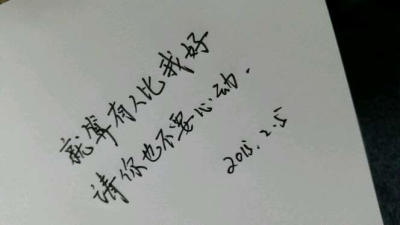 就算有人比我好
请你也不要心动.
2015.2.5